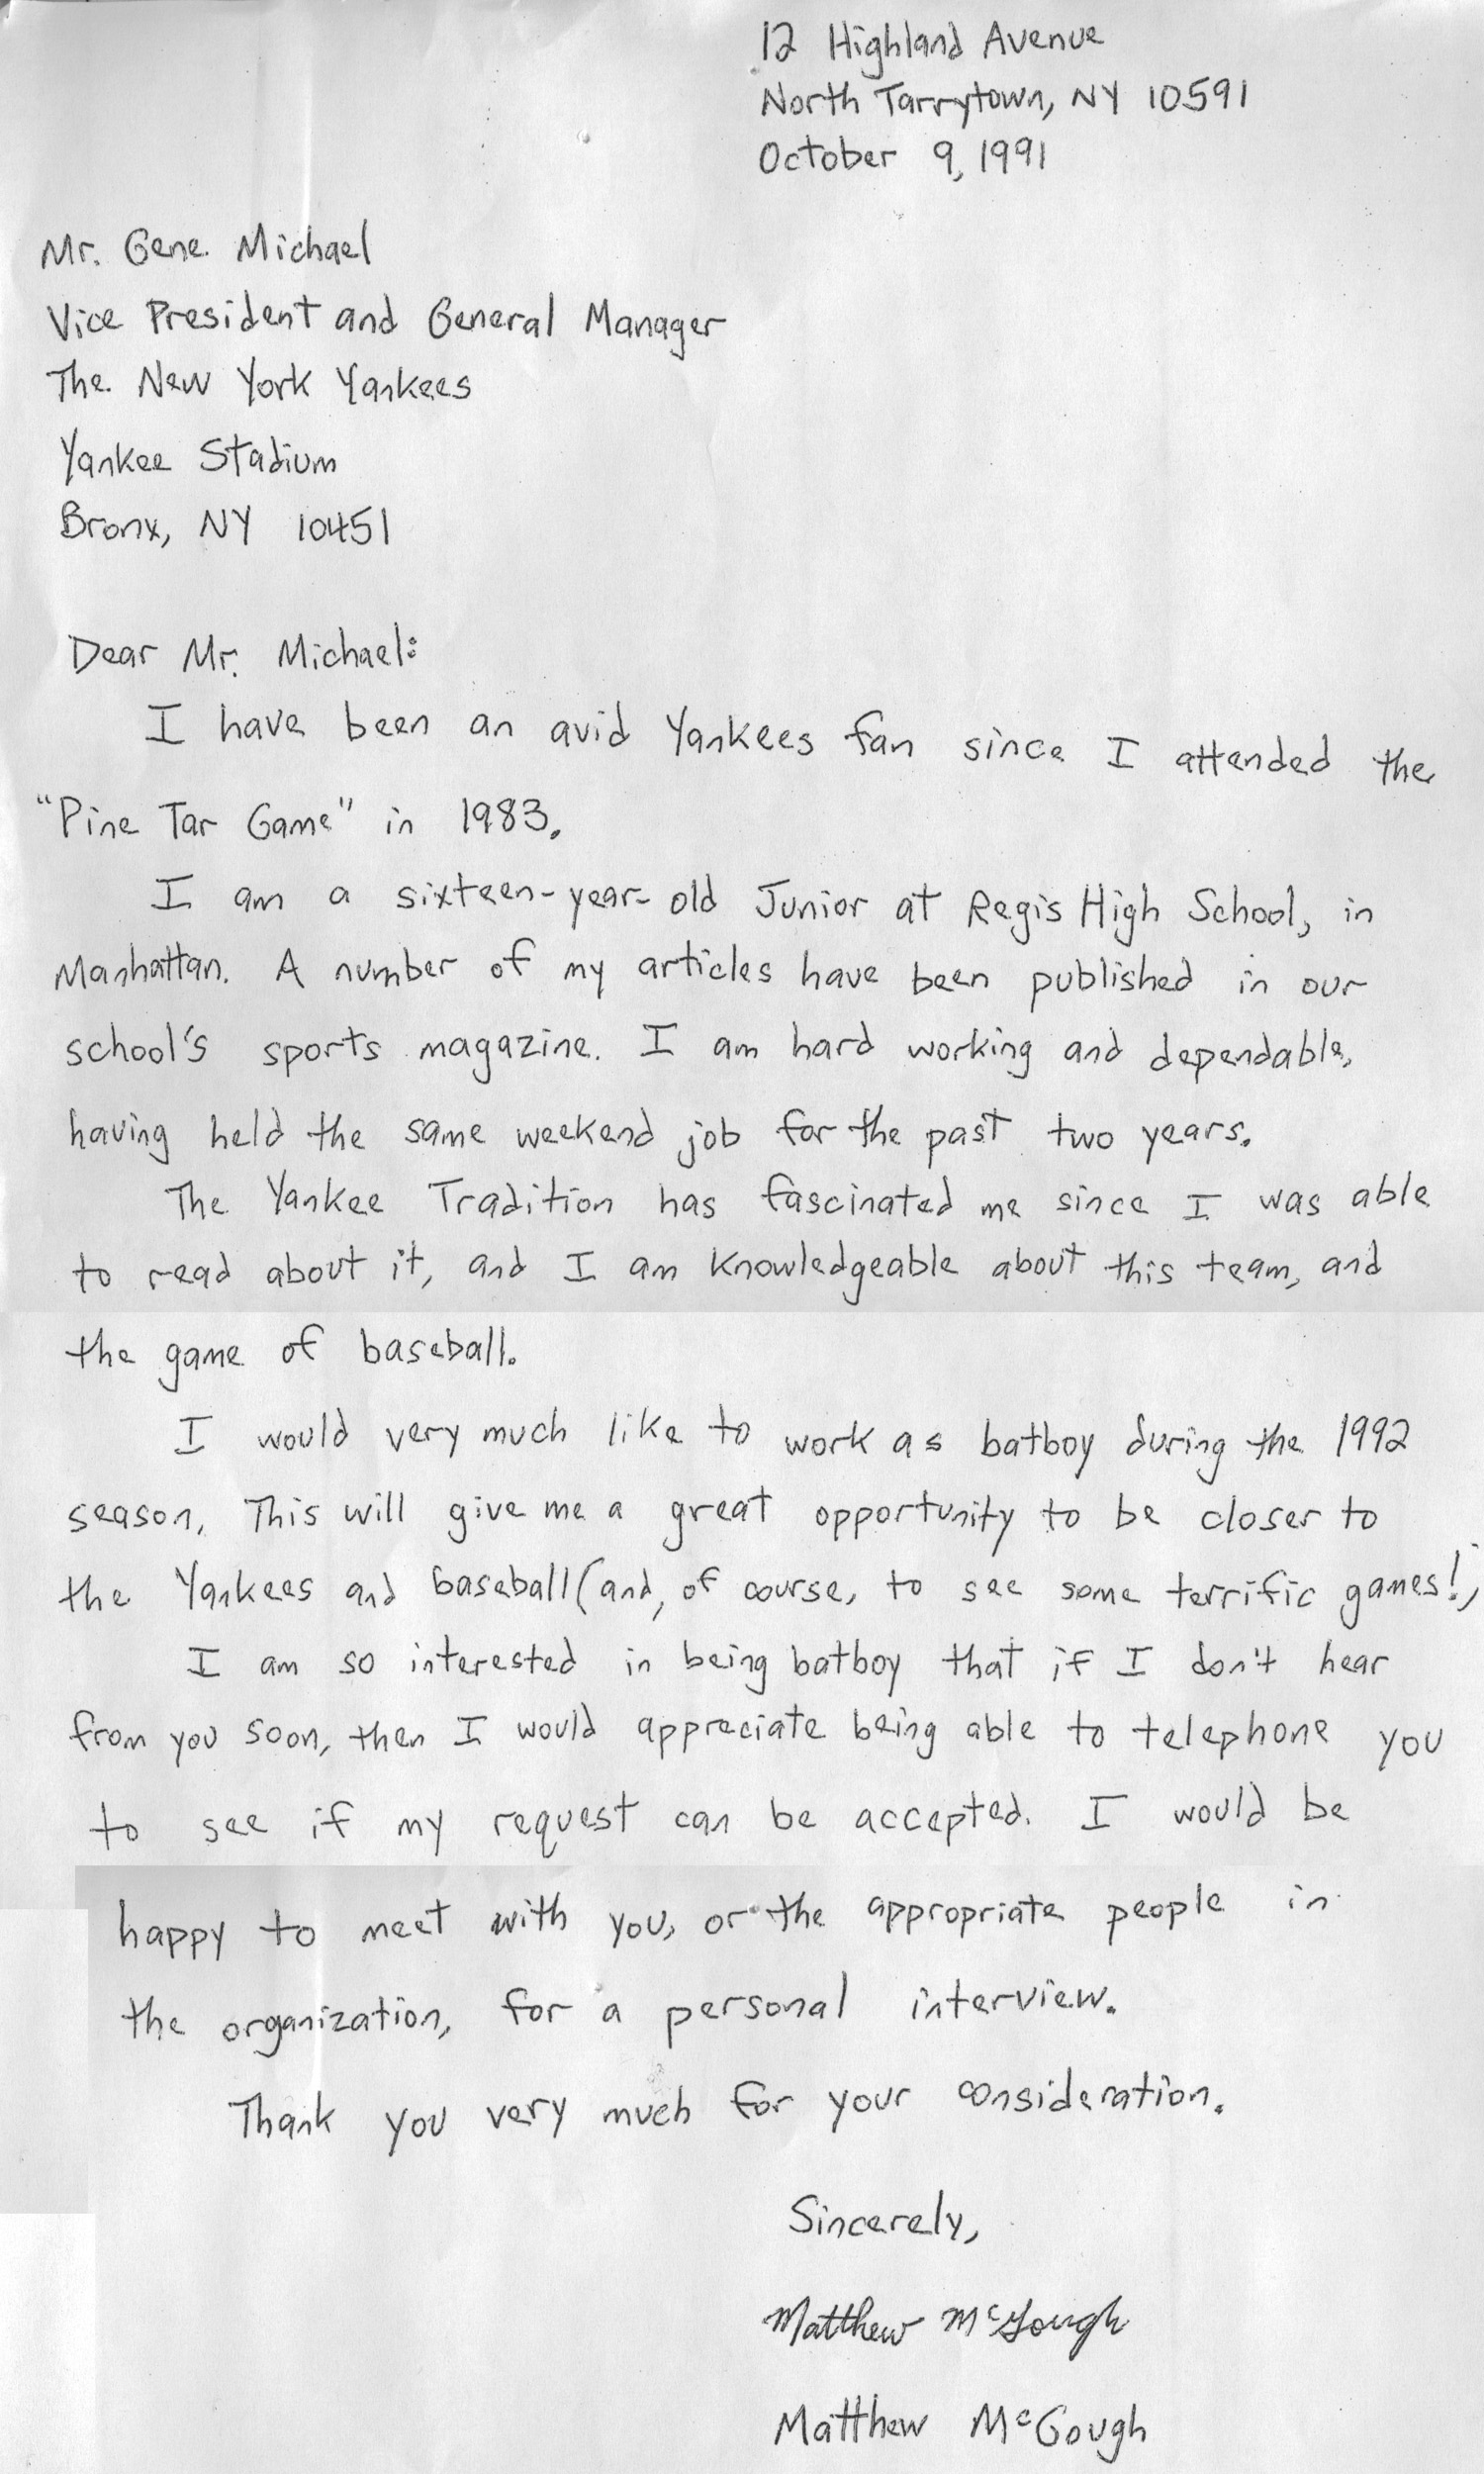 12 Highland Avenue
North Tarrytown, NY 10591
October 9, 1991
Mr. Gene Michael
Vice President and General Manager
The New York Yankees
Yankee Stadium
Bronx, NY 10451
Dear Mr. Michael:
I have been an avid Yankees fan since I attended the
"Pine Tar Game" in 1983.
I am a sixteen-year-old Junior at Regis High School, in
Manhattan. A number of my articles have been published in our
school's sports magazine. I am hard working and dependable,
having held the same weekend job for the past two years.
The Yankee Tradition has fascinated me since I was able
to read about it, and I am knowledgeable about this team, and
the game of baseball.
I would very much like to work as batboy during the 1992
season. This will give me a great opportunity to be closer to
the Yankees and baseball (and, of course, to see some terrific games!)
I am so interested in being batboy that if I don't hear
from you soon, then I would appreciate being able to telephone you
to see if my request can be accepted. I would be
happy to meet with you, or the appropriate people in
the organization, for a personal interview.
Thank you very much for your consideration.
Sincerely,
Matthew McGough
Matthew McGough